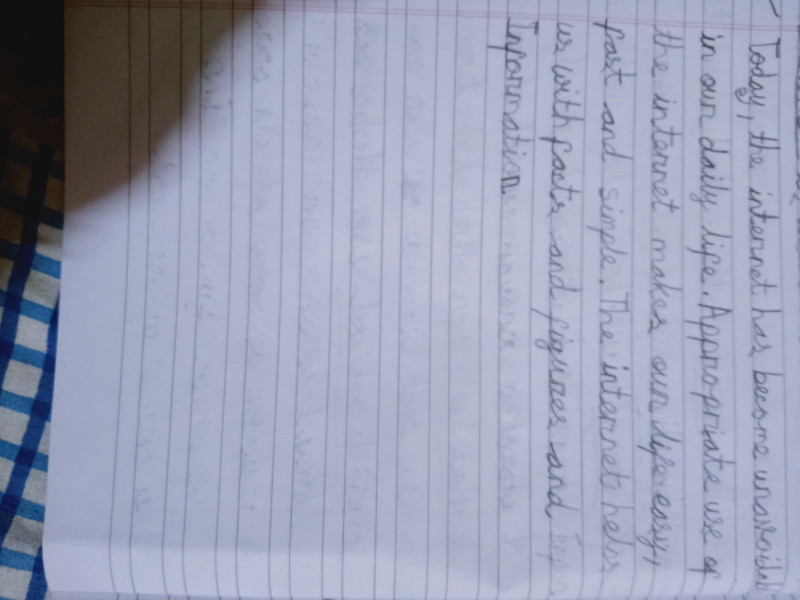 Today, the internet has become unavoidabl
in our daily life. Appropriate use of
the internet makes our life easy,
fast and simple. The internet helps
us with facts and figures and
Information.